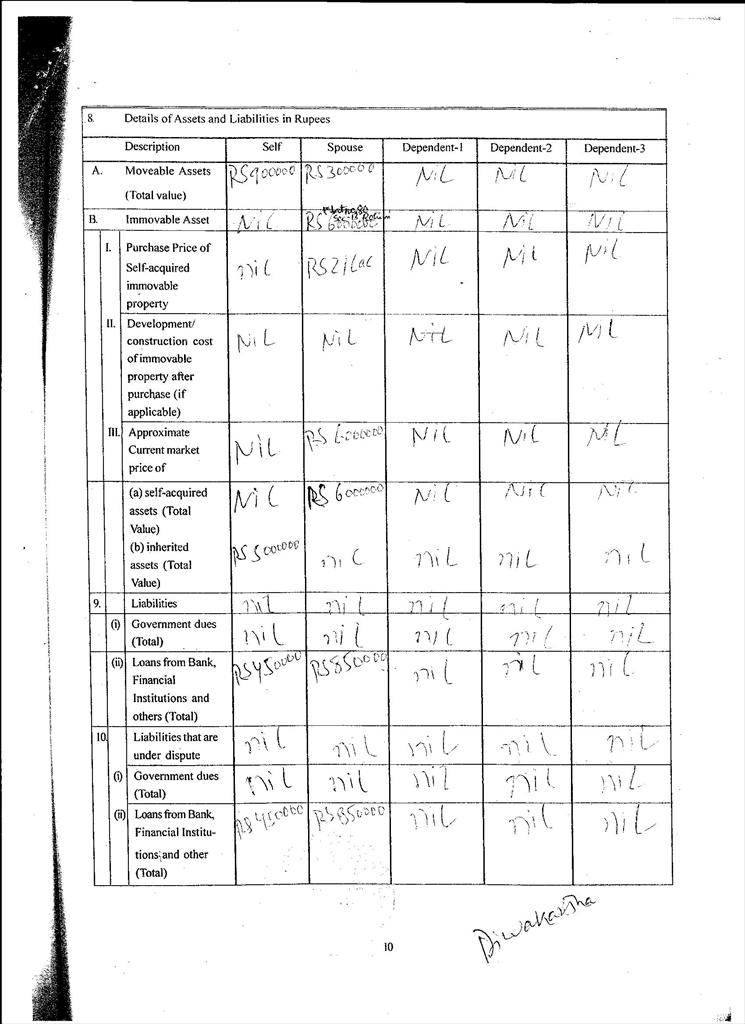 8. Details of Assets and Liabilities in Rupees
Description Self Spouse Dependent-1 Dependent-2 Dependent-3
A. Moveable Assets RS900000 RS300000 NiL NiL NiL
(Total value)
B. Immovable Asset NiL RS6000000 NiL NiL NiL
I. Purchase Price of
Self-acquired niL RS21Lac NiL NiL NiL
immovable
property
II. Development/
construction cost NiL NiL NiL NiL NiL
of immovable
property after
purchase (if
applicable)
III. Approximate NiL RS 6000000 NiL NiL NiL
Current market
price of
(a) self-acquired NiL RS 6000000 NiL NiL NiL
assets (Total
Value)
(b) inherited RS5000000 niL niL niL niL
assets (Total
Value)
9. Liabilities nil niL niL niL niL
(i) Government dues
(Total) niL niL niL niL niL
(ii) Loans from Bank, RS450000 RS850000 niL niL niL
Financial
Institutions and
others (Total)
10. Liabilities that are niL niL niL niL niL
under dispute
(i) Government dues niL niL niL niL niL
(Total)
(ii) Loans from Bank, RS450000 RS850000 niL niL niL
Financial Institu-
tions and other
(Total)
10